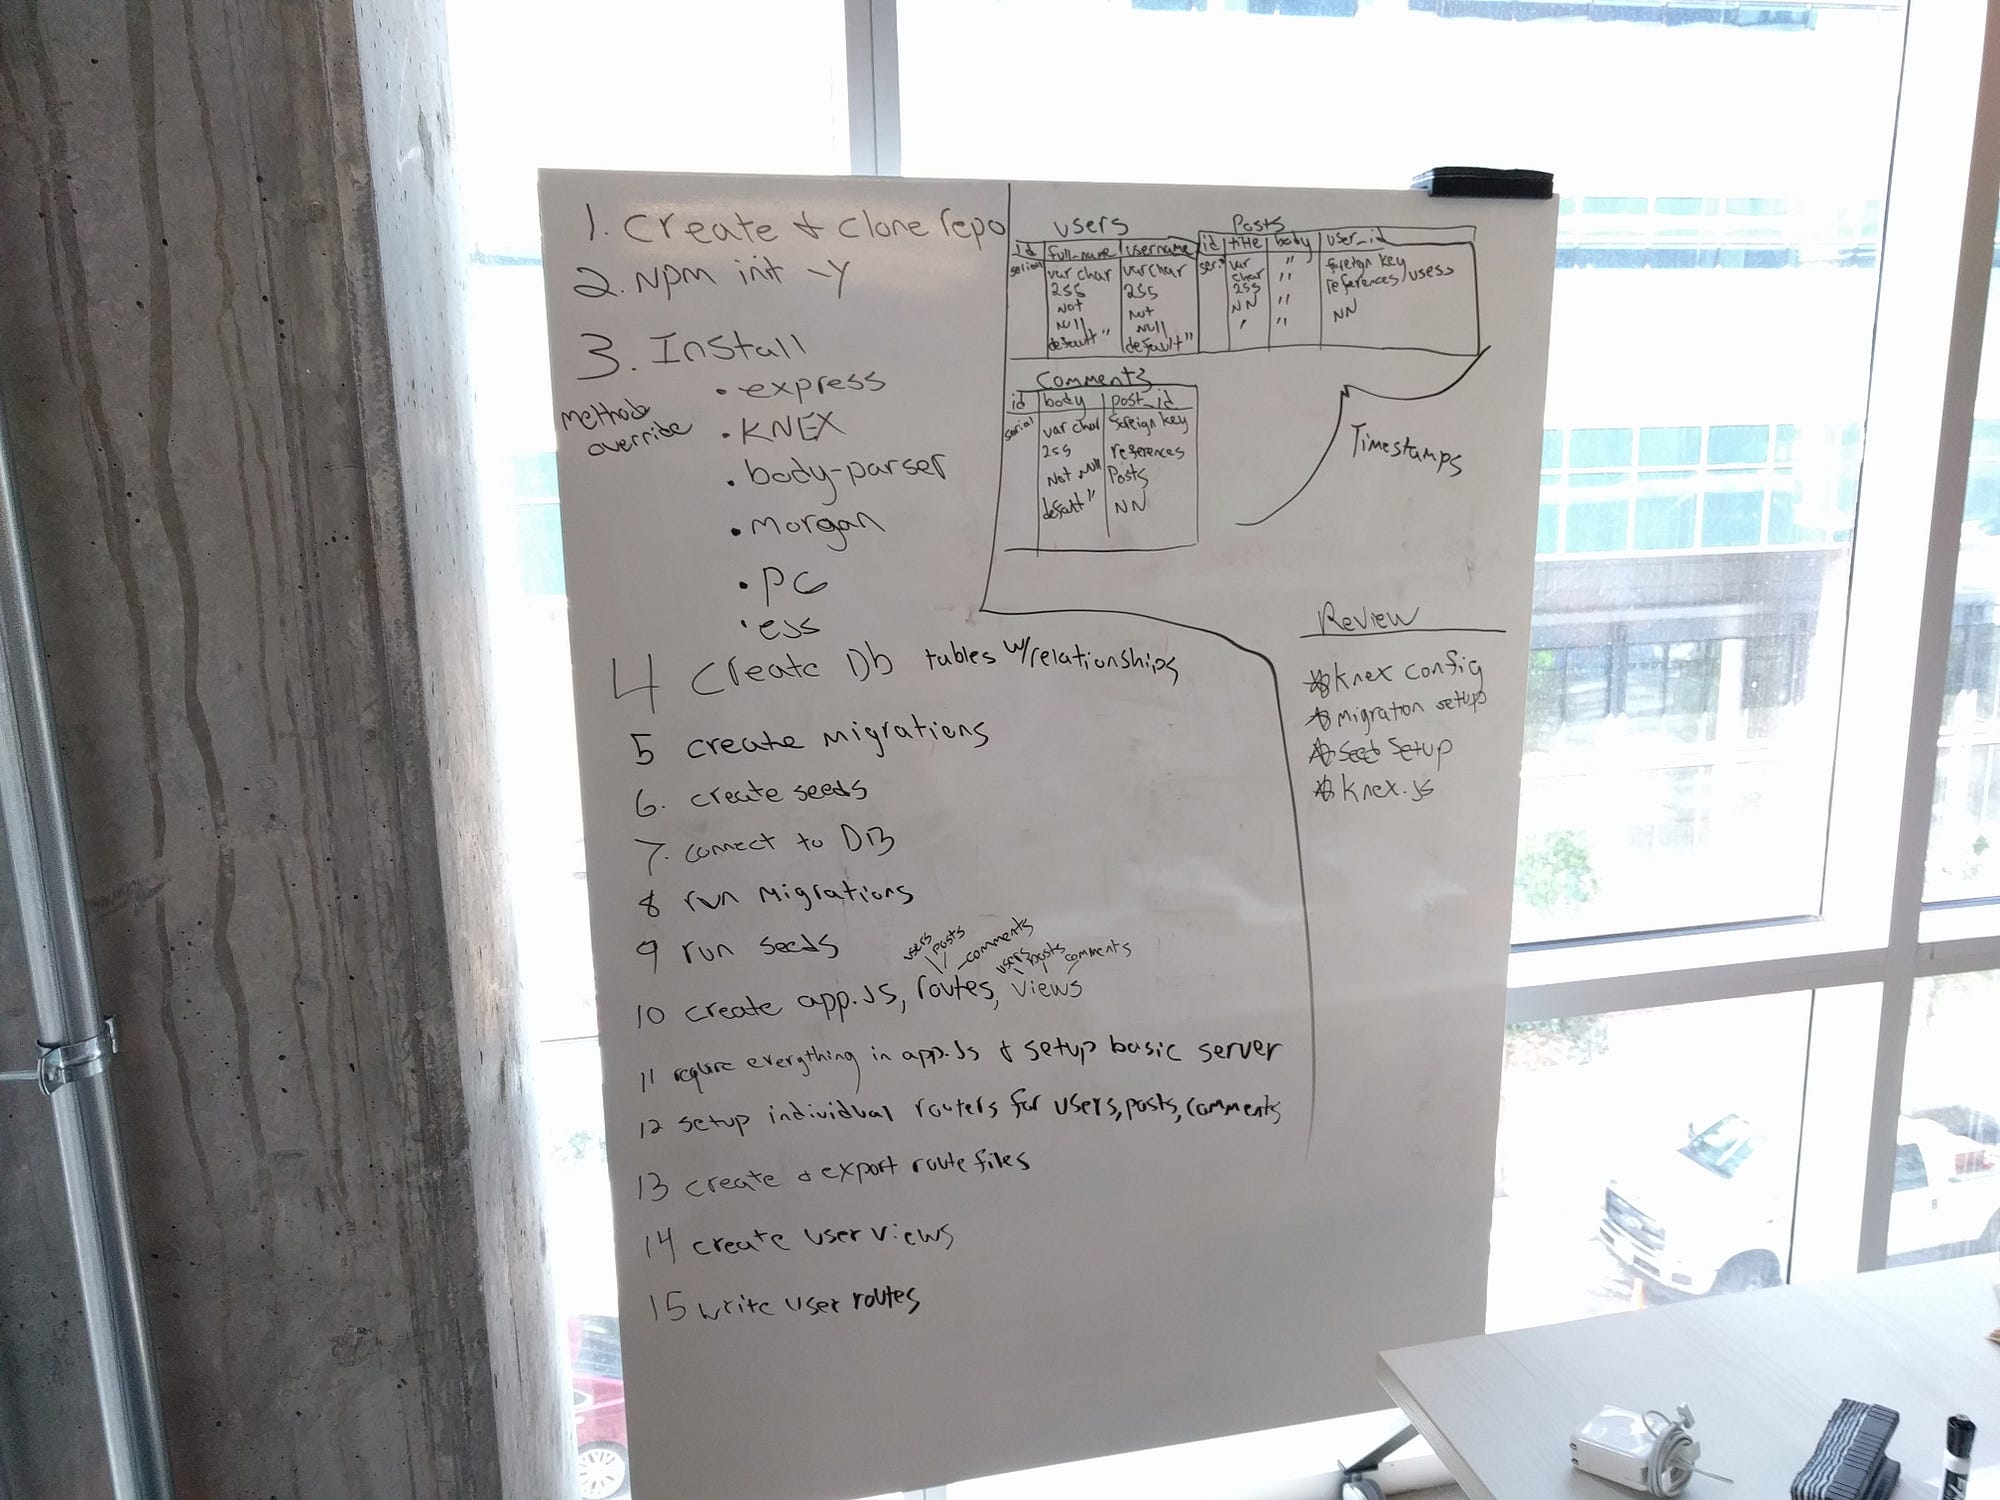 1. Create & Clone repo
2. NPM init -Y
3. Install
• express
Method override
• KNEX
• body-parser
• Morgan
• PG
• ejs
4 Create Db tables w/relationships
5 create Migrations
6. create seeds
7. connect to DB
8 run Migrations
9 run seeds
users posts comments
users posts comments
10 create app.JS, routes, views
11 require everything in app.Js & setup basic server
12 setup individual routers for users, posts, comments
13 create & export route files
14 create user views
15 write user routes
users
id full-name username
serial var char varchar
255 255
Not Not
Null Null
default" default"
Posts
id title body user_id
var " foreign key
char " references users
255
NN " NN
" "
Comments
id body post_id
serial var char foreign key
255 references
Not Null Posts
default" NN
Timestamps
Review
knex config
Migration setup
seed setup
knex.js